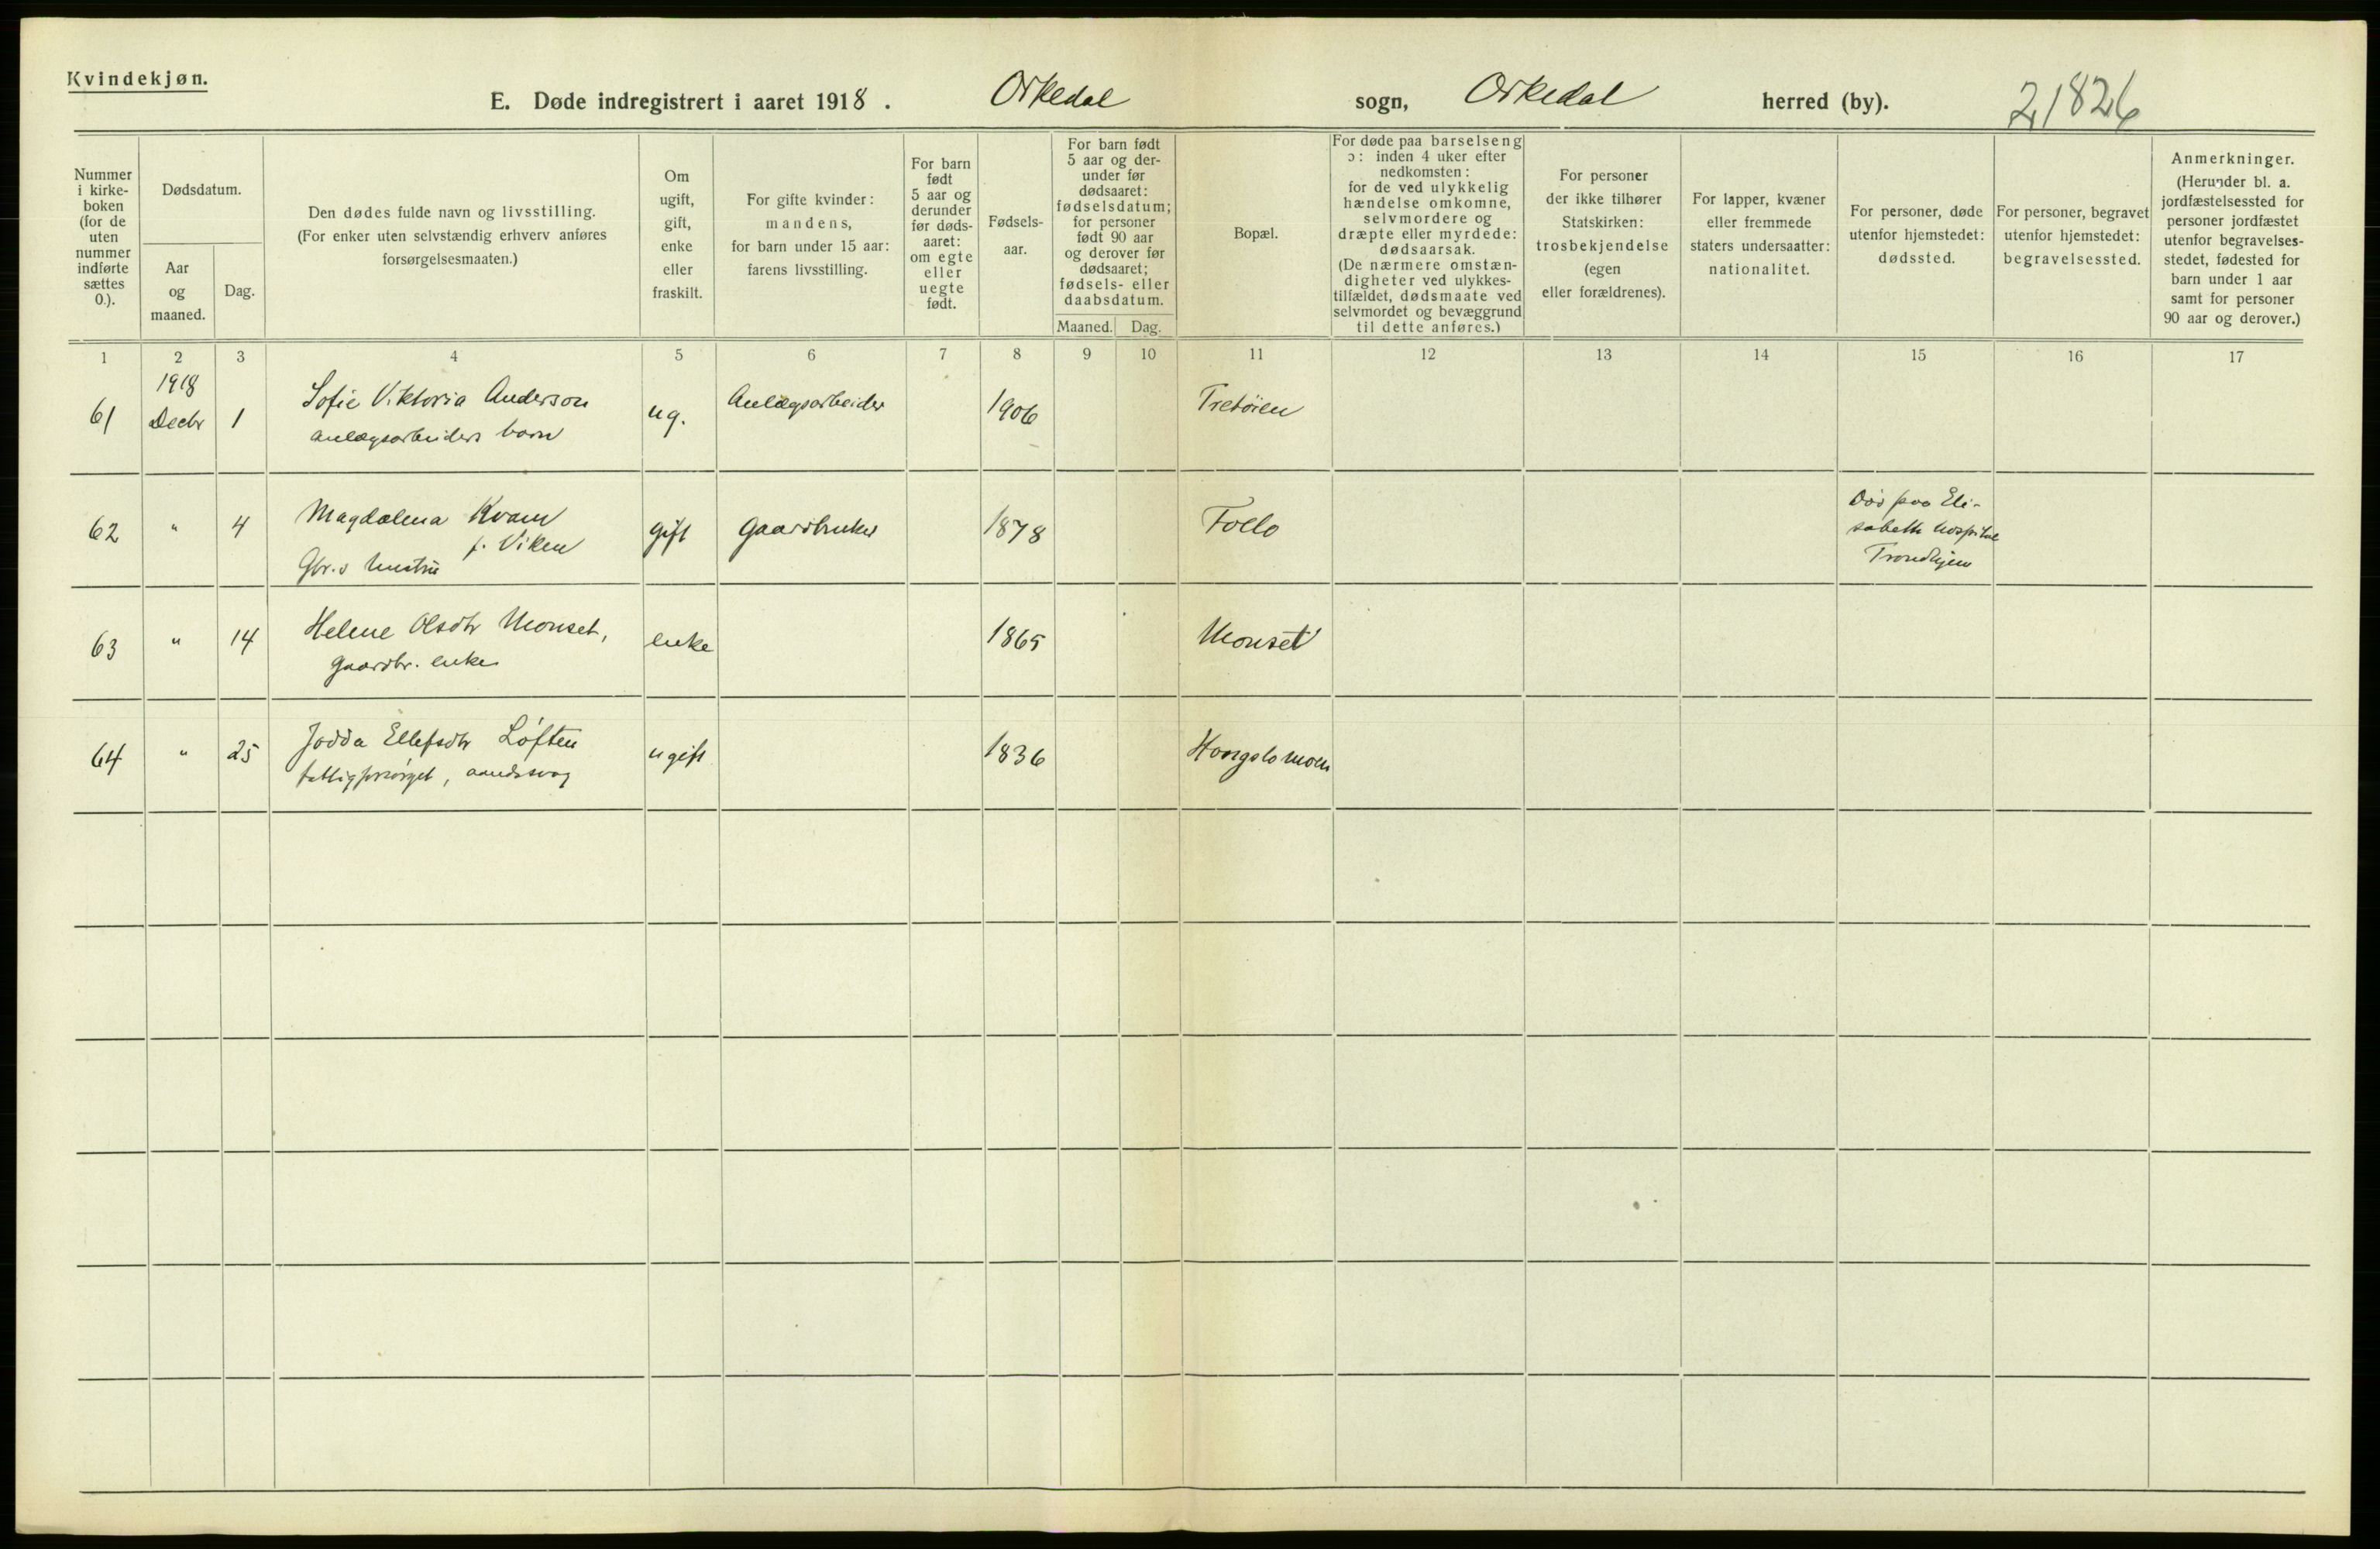 Kvindekjøn.
E. Døde indregistrert i aaret 1918. Orkedal sogn, Orkedal herred (by). 21826
Nummer i kirke- boken (for de uten nummer indførte sættes 0.).
Dødsdatum.
Aar og maaned.
Dag.
Den dødes fulde navn og livsstilling.
(For enker uten selvstændig erhverv anføres
forsørgelsesmaaten.)
Om ugift, gift, enke eller fraskilt.
For gifte kvinder:
mandens,
for barn under 15 aar:
farens livsstilling.
For barn født 5 aar og derunder før døds- aaret: om egte eller uegte født.
Fødsels- aar.
For barn født 5 aar og der- under før dødsaaret: fødselsdatum; for personer født 90 aar og derover før dødsaaret; fødsels- eller daabsdatum.
Maaned. Dag.
Bopæl.
For døde paa barselseng
ɔ: inden 4 uker efter
nedkomsten:
for de ved ulykkelig
hændelse omkomne,
selvmordere og
dræpte eller myrdede:
dødsaarsak.
(De nærmere omstæn-
digheter ved ulykkes-
tilfældet, dødsmaate ved
selvmordet og bevæggrund
til dette anføres.)
For personer
der ikke tilhører
Statskirken:
trosbekjendelse
(egen
eller forældrenes).
For lapper, kvæner
eller fremmede
staters undersaatter:
nationalitet.
For personer, døde
utenfor hjemstedet:
dødssted.
For personer, begravet
utenfor hjemstedet:
begravelsessted.
Anmerkninger.
(Herunder bl. a.
jordfæstelsessted for
personer jordfæstet
utenfor begravelses-
stedet, fødested for
barn under 1 aar
samt for personer
90 aar og derover.)
1 2 3 4 5 6 7 8 9 10 11 12 13 14 15 16 17
1918
61 Decbr 1 Sofie Viktoria Anderson ug. Anlægsarbeider 1906 Tretøien
anlægsarbeiders barn
62 " 4 Magdalena Kvam gift Gaardbruker 1878 Follo Død paa Eli-
f. Viken sabeth hospital
Gbr.s hustru Trondhjem
63 " 14 Helene Olsdtr Monset, enke 1865 Monset
gaardbr. enke
64 " 25 Jodda Ellefsdtr Løften ugift 1836 Hongslomoen
fattigforsørget, aandssvag